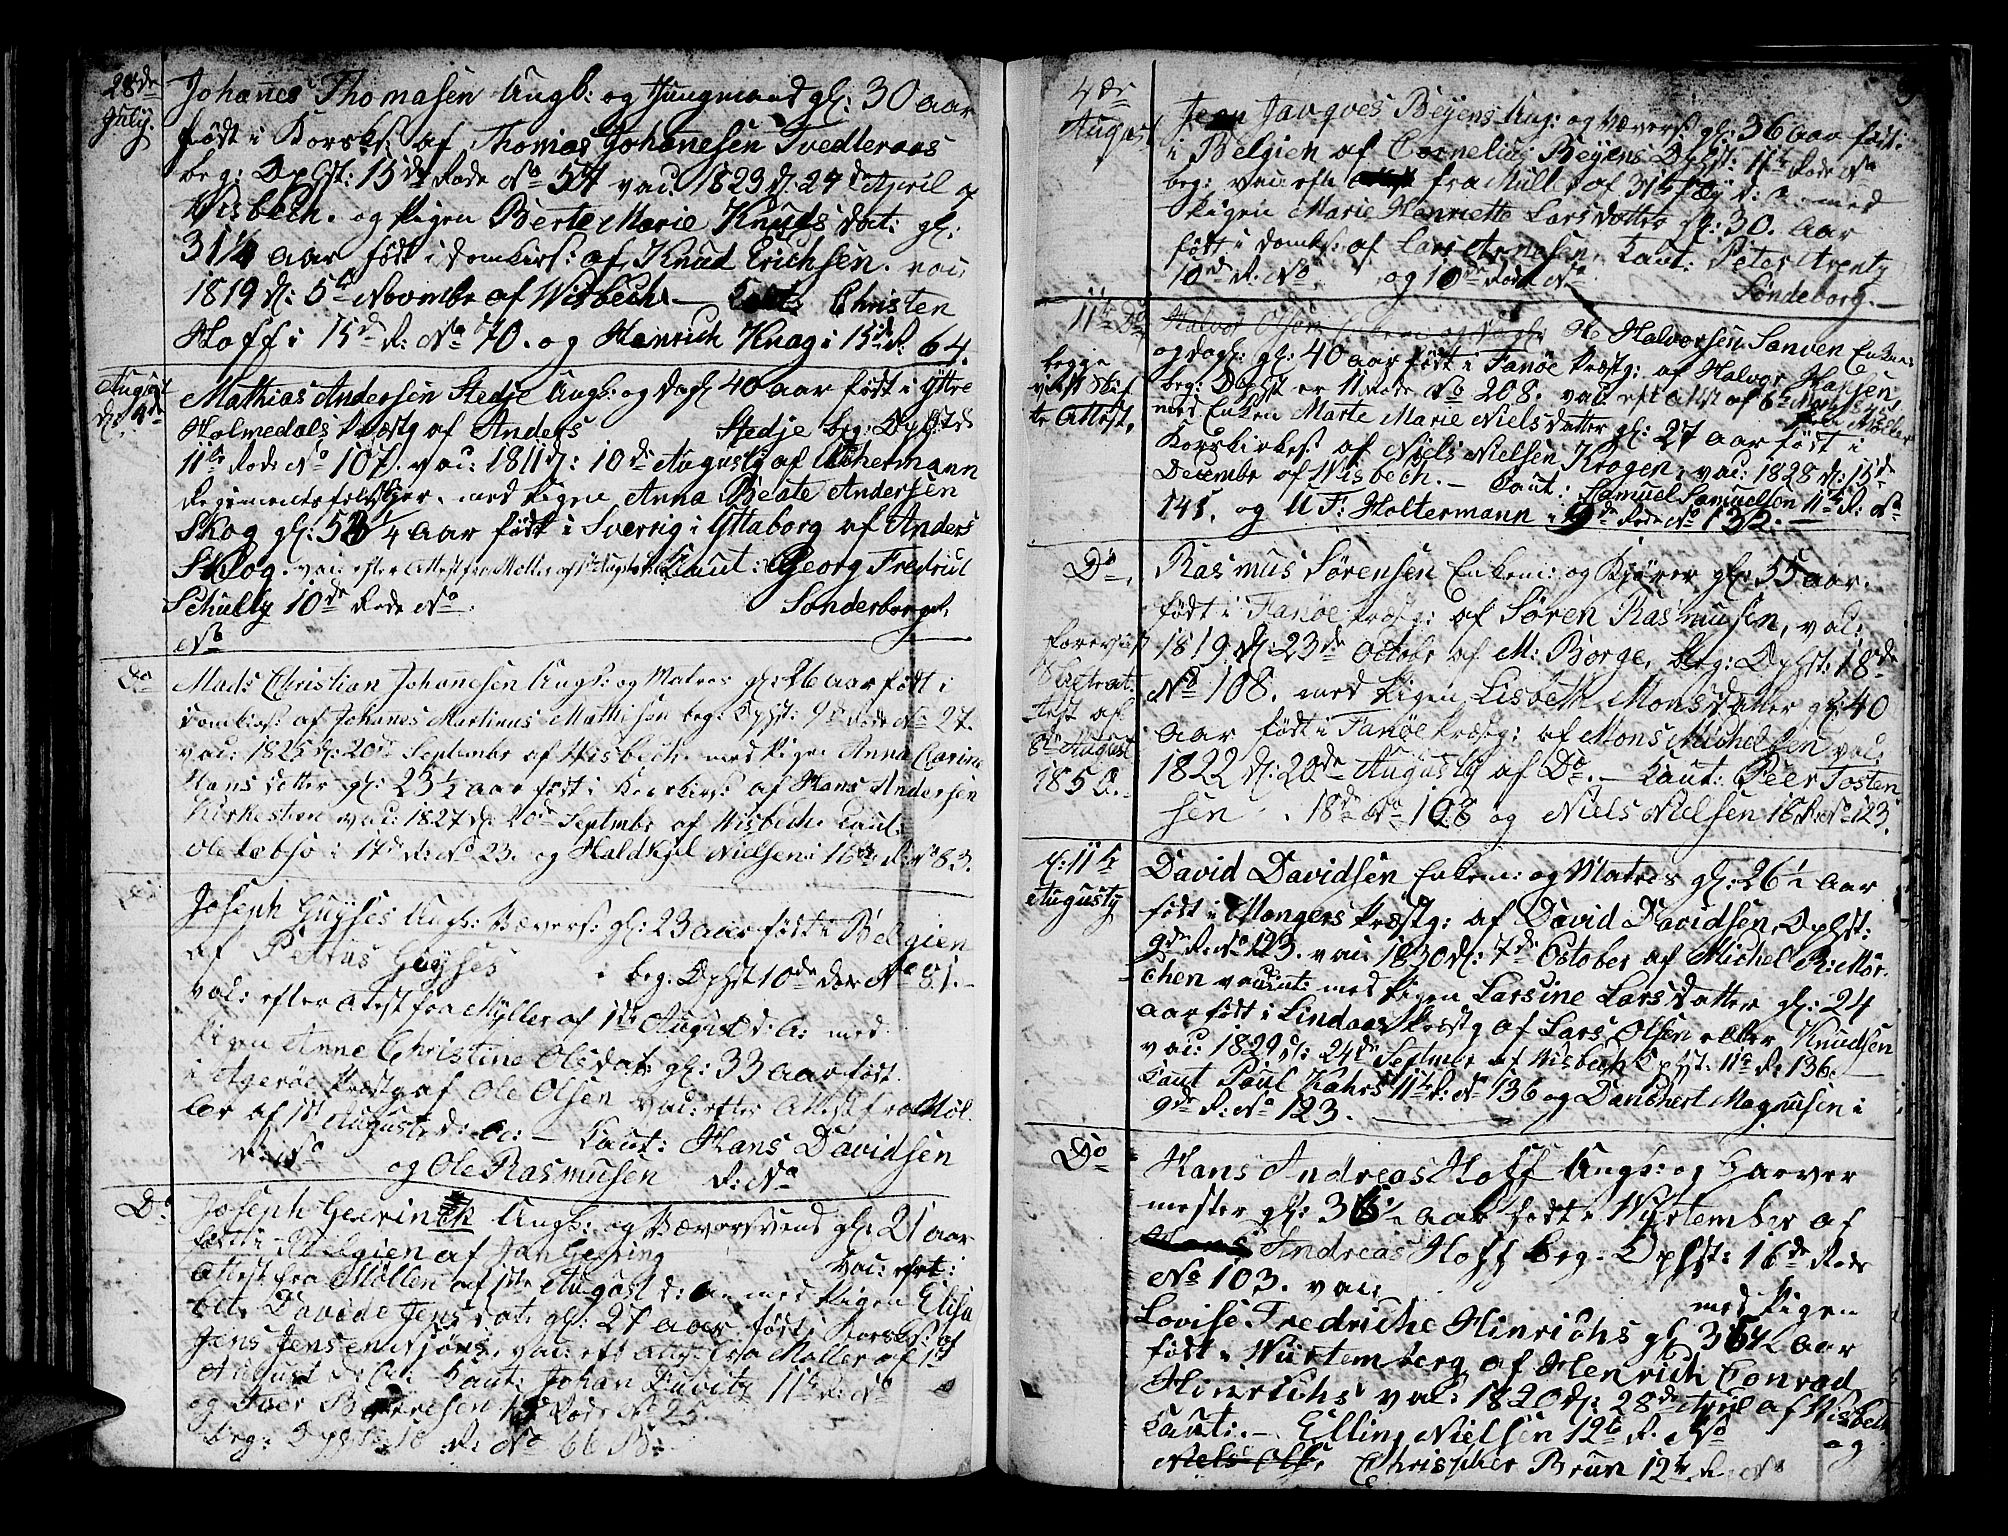 28de
July.
Johanes Thomasen Ungk: og Huusmand gl: 30 aar
født i Korsk: af Thomas Johanesen Tvedteraas
beg: Ophst: 15de Rode No 54 vac: 1823 d: 24de April af
Wisbech. og Pigen Berte Marie Knuds dat: gl:
31 1/4 aar født i Domkirk: af Knud Erichsen. vac:
1819 d: 5te Novembr af Wisbech — Caut: Christen
Hoff i 15de R: No 70. og Henrich Knag i 15de R: 64.
August
d: 4de
Mathias Andersen Stedje Ungk: og dagl 40 aar født i Yttre
Holmedals Præstg af Anders Stedje beg: Ophst
11te Rode No 107. vac: 1811 d: 10de Augusty af Achermann
Regimentsfeldskjær. med Pigen Anna Beate Andersen
Skog gl: 52 1/4 aar født i Sverrig i Gøtaborg af Anders
Skog. vac: efter Attest fra Møller af Caut: Georg Fredrich
Schultz 10de Rode No. Sonderborg
No
Do
Mads Christian Johanesen Ungk: og Matros gl: 26 aar født i
Domkirk: af Johanes Martinus Mathisen beg: Ophst: 9de Rode No 27.
vac: 1825 d: 20de Septembr af Wisbech. med Pigen Anna Clarine
Hans datter gl: 23 1/2 aar født i Korskirk: af Hans Andersen
Kirkestien vac: 1827 d: 20de Septembr af Wisbech. Caut:
Ole Lebsø i 17de R: No 23. og Haldkjel Nielsen i 16de R: No 83.
Joseph Guyses Ungk: Væversv: gl: 23 aar født i Belgien
af Petrus Guyses beg: Ophst 10de Rode No 81.
vac: efter Attest fra Myller af 1ste August d: A: med
Pigen Anne Christine Ols dat: gl: 33 aar født
i Agerøe Præstg af Ole Olsen vac: efter Attest fra Møl
ler af 1st Augusti d: A: — Caut: Hans Davidsen
R: No og Ole Rasmusen R: No
Do
Joseph Geerinck Ungk: og Væversvend gl: 21 aar
født i Belgien af Jan Geering vac: eft:
Attest fra Møllen af 1ste August d: A: med Pigen Elisa
bet Davide Jens dat: gl: 27 aar født i Korsk: af
Jens Jensen vac: eft Att: fra Møller af 1st
August d: A: Caut: Johan 11te R: No
og Iver Rode No 25.
beg: Ophst 10 R: No 66 B:
4de
August
Jean Jacques Beyens Ung: og Væversv: gl: 36 aar født
i Belgien af Cornelius Beyens Ophst: 11te Rode No
beg: vac: eft fra Müller af 31te July d: A: med
Pigen Marie Henriette Lars datter gl: 30. aar
født i Domk: af Lars Arnesen. Caut: Peter Arentz
10de R: No. og 10de Rode No Sønderborg. —
11te Do
begge
vist Skif
te Attest.
Halvor Olsen Enkem og dagl. Ole Halvorsen Sanven Enkem
og dagl: gl: 40 aar født i Fanøe Præstg: af Halvor Hansen,
beg: Ophst er 11 Rode No 208. vac: eft Attst af 6te Marts
med Enken Marte Marie Niels datter gl: 27 aar født i
Korskirke af Niels Nielsen Krogen, vac: 1828 d: 15de
Decembr af Wisbech. — Caut: Samuel Samuelson 11te R: No
145. og U F: Holtermann i 9de Rode No 132. —
Do.
forevist
Skifteat
test af
8de August
1850.
Rasmus Sørensen Enkem: og Kjører gl: 55 aar.
født i Fanøe Præstg: af Søren Rasmusen, vac:
1819 d: 23de Octobr af M: Borge, beg: Ophst: 18de
No 108. med Pigen Lisbeth Monsdatter gl: 40
aar født i Fanøe Præstg: af Mons Michelsen vac:
1822 d: 20de Augusty af Do. — Caut: Peer Tosten
sen 18de No 108 og Niels Nielsen 18 R: No 123.
d: 11te
Augusty
David Davidsen Enkem: og Matros gl: 26 1/2 aar
født i Mangers Præstg: af David Davidsen, Ophst:
9de R: No 123. vac: 1830 d: 7de October af Michel R: Mør
chen vaccint: med Pigen Larsine Lars datter gl: 24
aar født i Lindaas Præstg af Lars Olsen eller Knudsen
vac: 1829 d: 24de Septembr af Wisbech Ophst: 11te R: 136.
Caut Paul Kahrs 11te R: No 136 og Danchert Magnusen i
9de R: No 123. —
Do
Hans Andreas Hoff Ungk: og Garver
mester gl: 36 1/2 aar født i Würtember af
Andreas Hoff beg: Ophst: 16de Rode
No 103. vac:
med Pigen
Lovise Fredriche Hinrichs gl 36 1/2 aar
født i Würtemberg af Henrich Conrad
Hinrichs vac: 1820 d: 28de April af Wisbech
Caut: — Elling Nielsen 12te R: No og
Niels Ols. Christopher Brun 12te R: No